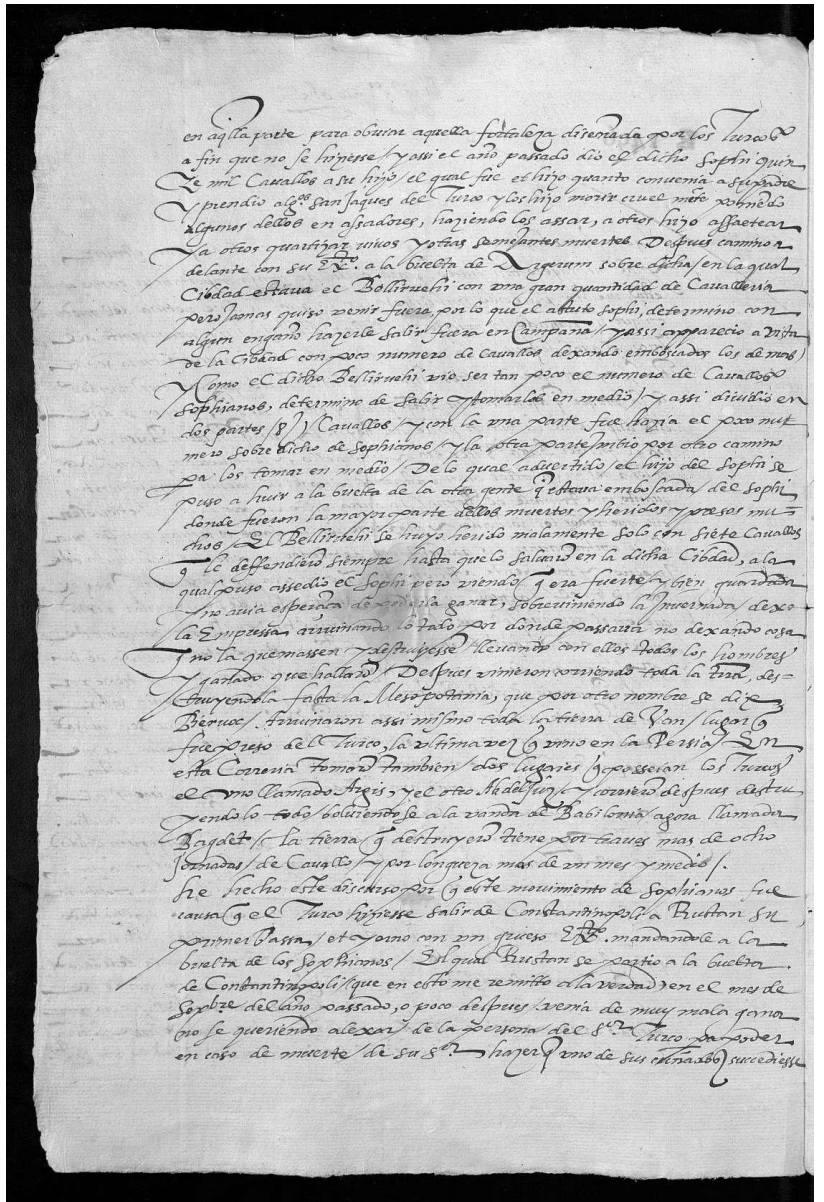 en aq̃lla parte para obviar aquella fortaleza diseñada por los Turcos
a fin que no se hiziesse / y assi el año passado dio el dicho Sophi quin
ze mil Cavallos a su hijo / el qual fue et hizo quanto convenia a su padre
y prendio alg.os San Jaques del Turco y los hizo morir cruel mẽte poniẽdo
algunos dellos en assadores, haziendo los assar, a otros hizo assaetear
y a otros quartizar vivos y otras semejantes muertes. Despues camino a
delante con su ex.to a la buelta de Argirum sobre dicha / en la qual
Cibdad estava el Bellirvehi con una gran quantidad de Cavalleria
pero Jamas quiso venir fuera, por lo que el astuto Sophi, determino con
algun engaño hazerle salir fuera en Campaña / y assi apparecio a vista
de la Cibdad con poco numero de Cavallos, dexando emboscados los de mas /
y Como el dicho Bellirvehi vio ser tan poco el numero de Cavallos
Sophianos, determino de salir y tomarlos en medio / y assi dividio en
dos partes / Cavallos / y con la una parte fue hazia el poco nu
mero sobre dicho de Sophianos / y la otra parte imbio por otro camino
pa los tomar en medio / De lo qual advertido / el hijo del Sophi se
puso a huir a la buelta de la otra gente q̃ estava emboscada / del Sophi
donde fueron la mayor parte dellos muertos y heridos y presos mu-
chos / El Bellirvehi se huyo herido malamente solo con siete Cavallos
q̃ le deffendierõ siempre hasta que lo salvarõ en la dicha Cibdad, a la
qual puso assedio el Sophi pero viendo / q̃ era fuerte y bien guardada
y no avia esperãça de poderla ganar, sobreviniendo la Invernada / dexo
la Empressa arruinando lo talo por donde passava no dexãdo cosa
q̃ no la quemassen y destruyessẽ llevando con ellos todos los hombres
y ganado que hallarõ / Despues vinieron corriendo toda la trra, des-
truyendola fasta la Mesopotania, que por otro nombre se dize
Biervex / Arruinaron assi mismo toda la tierra de Van / lugar q̃
fue preso del Turco, la ultima vez q̃ vino en la Persia / En
esta Correria tomarõ tambien / dos lugares q̃ posseian los Turcos
el uno llamado Argis, y el otro / y corrierõ despues destru
yendolo todo / bolviendo se a la vanda de Babilonia, agora llamada
Bagdet / La tierra / q̃ destruyerõ tiene por traves mas de ocho
Jornadas / de Cavallo / y por longueza mas de un mes y medio /.
he hecho este discurso por q̃ este movimiento de Sophianos fue
causa q̃ el Turco hiziesse salir de Constantinopoli a Rustan su
primer bassa, et yerno con un grueso ex.to mandandole a la
buelta de los Sophianos / El qual Rustan se partio a la buelta
de Constantinpoli / que en esto me remitto a la verdad / en el mes de
Sepbre. del año passado, o poco despues / venia de muy mala gana
no se queriendo alexar / de la persona / del S.or Turco pa poder
en caso de muerte / de su S.or hazer q̃ uno de sus cuñados succediesse